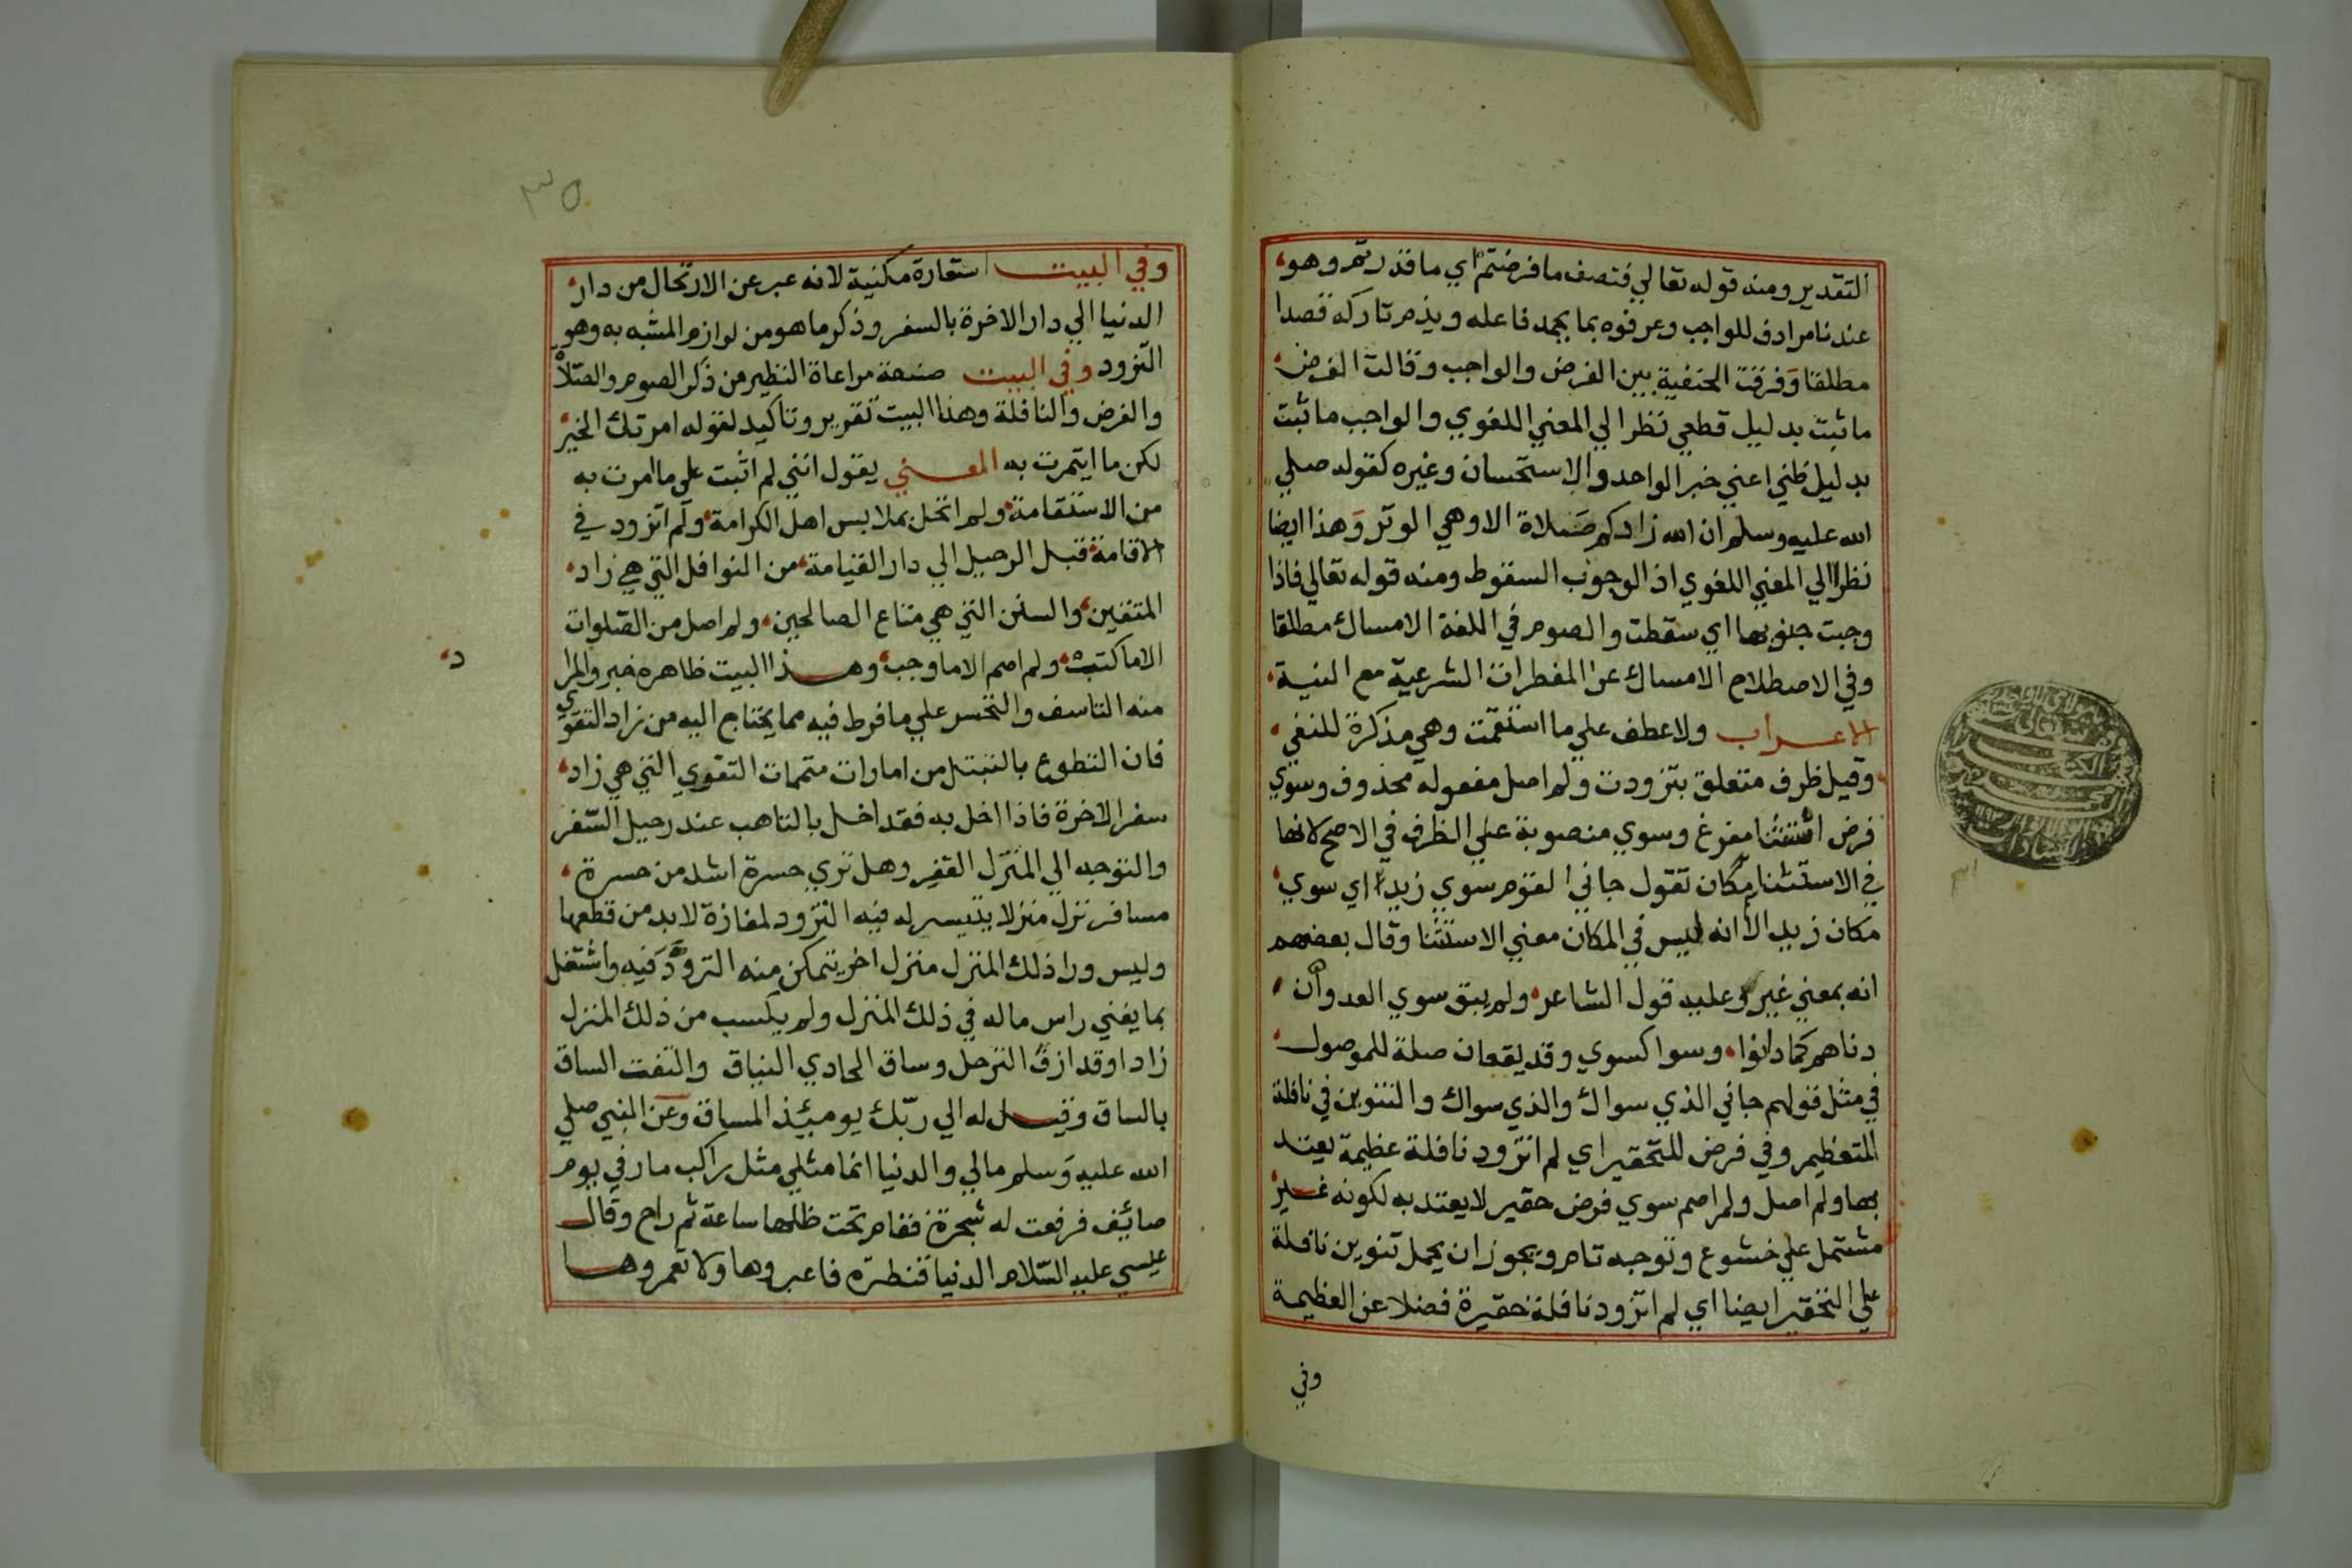 التقدير ومنه قوله تعالي فنصف ما فرضتم اي ما قدرتم وهو
عندنا مرادف للواجب وعرفوه بما يحمد فاعله ويذم تاركه قصدا
مطلقا وفرقت الحنفية بين الفرض والواجب وقالت الفرض
ما ثبت بدليل قطعي نظرا لي المعني اللغوي والواجب ما ثبت
بدليل ظني اعني خبر الواحد والاستحسان وغيره كقوله صلي
الله عليه وسلم ان الله زادكم صلاة الا وهي الوتر وهذا ايضا
نظرا الي المعني اللغوي اذ الوجوب السقوط ومنه قوله تعالي فاذا
وجبت جنوبها اي سقطت والصوم في اللغة الامساك مطلقا
وفي الاصطلاح الامساك عن المفطرات الشرعية مع النية
الاعراب ولا عطف علي ما استقمت وهي مذكرة للنفي
وقبل ظرف متعلق بتزودت ولم اصل مفعوله محذوف وسوي
فرض استثنا مفرغ وسوي منصوبة علي الظرف في الاصح لانها
في الاستثنا مكان تقول جاني القوم سوي زيد اي سوي
مكان زيد الا انه ليس في المكان معني الاستثنا وقال بعضهم
انه بمعني غير وعليه قول الشاعر ولم يبق سوي العدوان
دناهم كما دانوا وسوا كسوي وقد يقعان صلة للموصول
في مثل قولهم جاني الذي سواك والذي سواك والتنوين في نافلة
للتعظيم وفي فرض للتحقير اي لم اتزود نافلة عظيمة يعتد
بها ولم اصل ولم اصم سوي فرض حقير لا يعتد به لكونه غير
مشتمل علي خشوع وتوجه تام ويجوز ان يحمل تنوين نافلة
علي التحقير ايضا اي لم اتزود نافلة حقيرة فضلا عن العظيمة
وفي
٣٥
وفي البيت استعارة مكنية لانه عبر عن الارتحال من دار
الدنيا الي دار الاخرة بالسفر وذكر ما هو من لوازم المشبه به وهو
التزود وفي البيت صنعة مراعاة النظير من ذكر الصوم والصلاة
والفرض والنافلة وهذا البيت تقرير وتاكيد لقوله امرتك الخير
لكن ما ايتمرت به المعني يقول انني لم اثبت علي ما امرت به
من الاستقامة ولم اتحل بملابس اهل الكرامة ولم اتزود في
الاقامة قبل الرحيل الي دار القيامة من النوافل التي هي زاد
المتقين والسنن التي هي متاع الصالحين ولم اصل من الصلوات
الا ما كتب ولم اصم الا ما وجب وهذا البيت ظاهره خبر والمرا
د
منه التاسف والتحسر علي ما فرط فيه مما يحتاج اليه من زاد التقوي
فان التطوع بالتبتل من امارات متممات التقوي التي هي زاد
سفر الاخرة فاذا اخل به فقد اخل بالتاهب عند رحيل السفر
والتوجه الي المنزل القفر وهل تري حسرة اشد من حسرة
مسافر نزل منزلا يتيسر له فيه التزود لمفازة لا بد من قطعها
وليس ورا ذلك المنزل منزل اخر يتمكن منه التزود فيه واشتغل
بما يفني راس ماله في ذلك المنزل ولم يكسب من ذلك المنزل
زادا وقد ازف الترحل وساق الحادي النياق والتفت الساق
بالساق وقيل له الي ربك يومئذ المساق وعن النبي صلي
الله عليه وسلم مالي والدنيا انما مثلي مثل راكب مار في يوم
صائف فرفعت له شجرة فقام تحت ظلها ساعة ثم راح وقال
عيسي عليه السلام الدنيا قنطرة فاعبروها ولا تعمروها